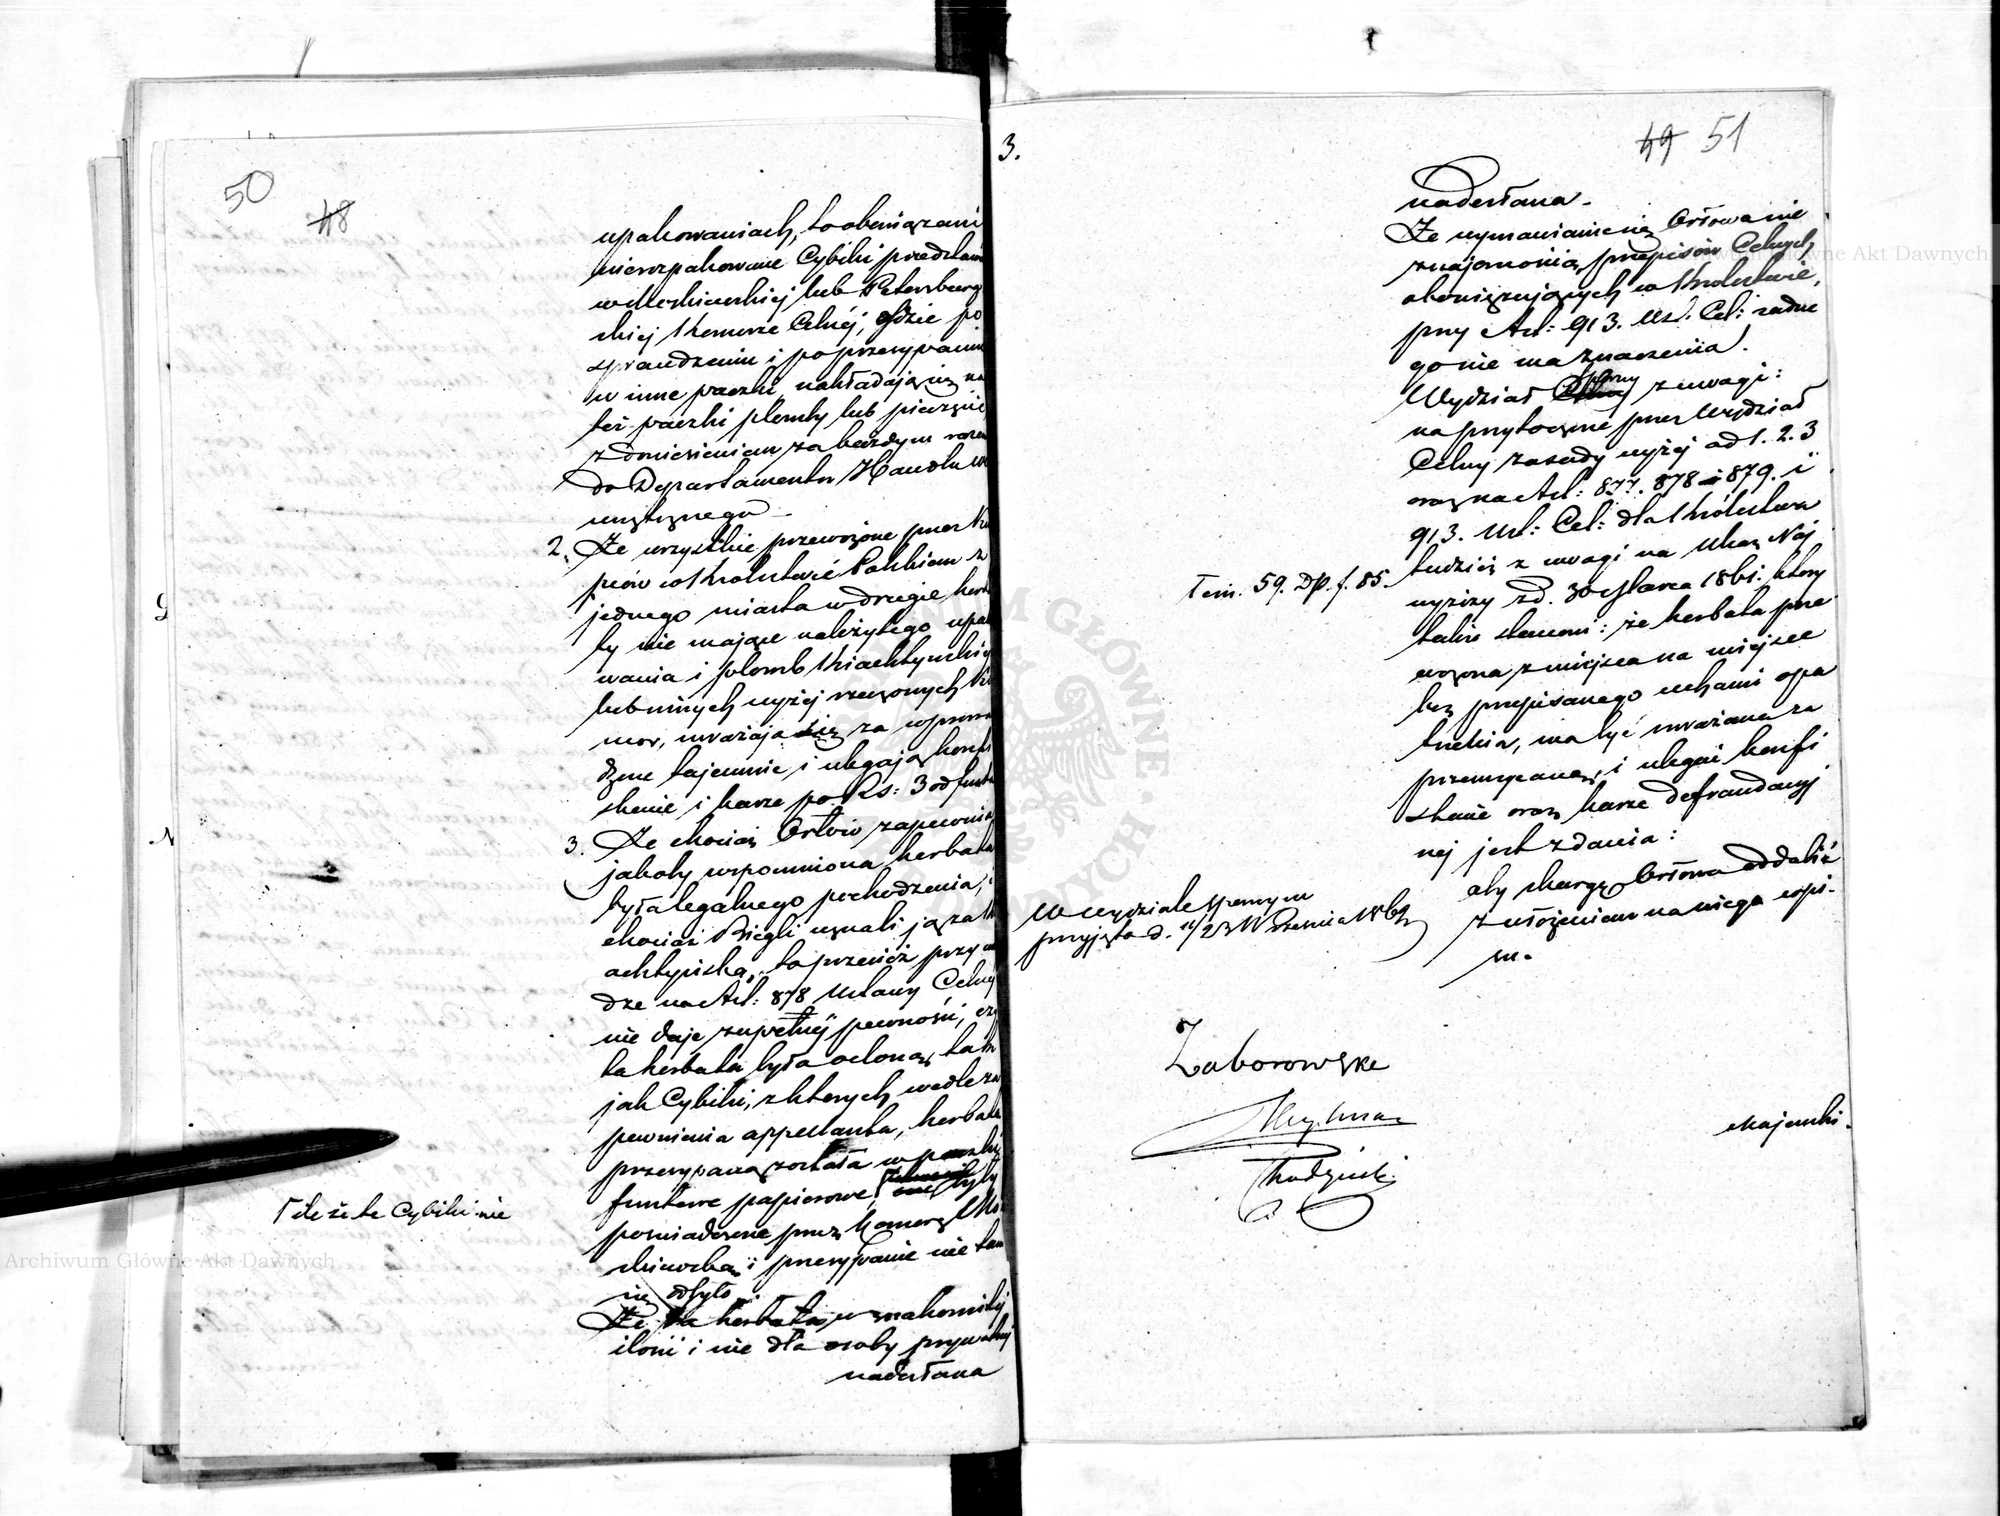 50
48
upakowaniach, to obowiązani
nierozpakowane Cybiki przedstawi
w Moskiewskiej lub Petersburg
skiej Komorze Celnéj, gdzie po
sprawdzeniu i po przesypaniu
w inne paczki, nakładają się na
też paczki plomby lub pieczęcie
z doniesieniem za każdym razem
do Departamentu Handlu We
wnętrznego
2. Że wszystkie przewożone przez Ku
pców w Królestwie Polskiem z
jednego miasta w drugie herba
ty nie mające należytego upako
wania i plomb Kiachtyńskich
lub innych wyżej rzeczonych Ko
mor, uważają się za wprowa
dzone tajemnie i ulegają konfi
skacie i karze po Rs: 3 od funta
3. Że chociaż Orłow zapewnia
jakoby wspomniona herbata
była legalnego pochodzenia,
chociaż Biegli uznali ją za Ki
achtyńską, to przecież przy
dze na Art: 878 Ustawy Celnéj
nie daje zupełnéj pewności, czy
ta herbata była ocloną, tak
jak Cybiki, z których wedle za
pewnienia appellanta, herbata
przesypaną została w paczki
funtowe papierowe, były
poświadczone przez Komorę Mo
skiewską i przesypanie nie tam
się odbyło.
Ile że te Cybiki nie
Że ta herbata w znakomitej
ilości i nie dla osoby prywatnej
nadesłana
3.
49 51
nadesłana.
Że wymawianie się Orłowa nie
znajomością przepisów Celnych
obowiązujących w Królestwie,
przy Art: 913. Ust. Cel: żadne
go nie ma znaczenia.
Wydział Sporny z uwagi:
na przytoczone przez Wydział
Celny zasady wyżej ad 1. 2. 3
oraz na Art: 877. 878 i 879. i
913. Ust: Cel: dla Królestwa
tudzież z uwagi na Ukaz Naj
Tem. 59. Dp. f. 85.
wyższy z d. 30 Marca 1861. który
także stanowi: że herbata prze
wożona z miejsca na miejsce
bez przepisanego uchami opa
trzenia, ma być uważana za
przemycaną, i ulegać konfi
skacie oraz karze defraudacyj
nej jest zdania:
aby skargę Orłowa oddalić
z włożeniem na niego wpi-
su.
W Wydziale Spornym
przyjęto d. 11/23 Września 1862
Zaborowski
Majewski.
Chudziński